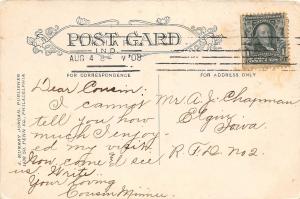 POST CARD
IND.
AUG 4
08
FOR CORRESPONDENCE
FOR ADDRESS ONLY
Dear Cousin:
I cannot
tell you how
much I enjoy-
ed my visit.
Now, come & see
us. Write.
Your loving
Cousin Minnie
Mr. A. J. Chapman
Elgin,
Iowa.
R.F.D No. 2.
J. MURRAY JORDAN, PUBLISHER
PHILADELPHIA